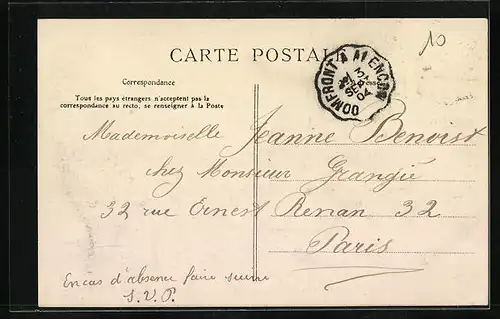 10
CARTE POSTALE
DOMFRONT A ALENÇON
Correspondance
Tous les pays étrangers n'acceptent pas la
correspondance au recto, se renseigner à la Poste
Mademoiselle Jeanne Benoist
chez Monsieur Grangié
32 rue Ernest Renan 32
Paris
En cas d'absence faire suivre
S.V.P.